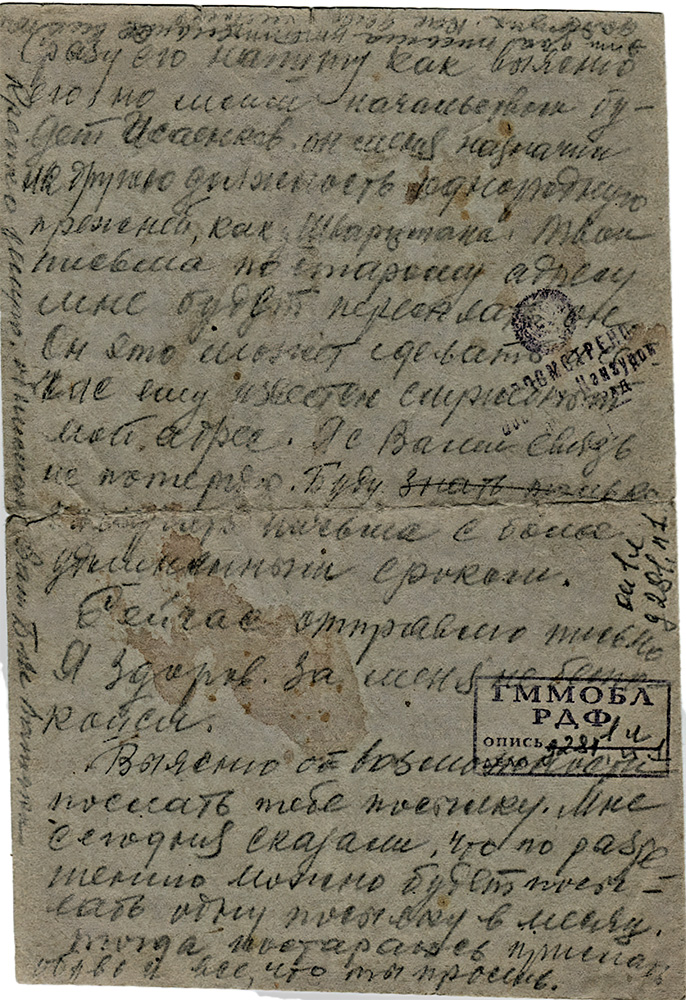 Сразу его напишу как выясню
его, но моим начальством бу-
дет Исаенков. он меня назначил
на другую должность однородную
прежней, как Шварцмана. Твои
письма по старому адресу
мне будет пересылать он.
Он это может сделать
как ему известен
мой адрес. Я с Вами связь
не потеряю. Буду знать только
письма с более
удлиненными сроками.
Сейчас отправляю письмо
Я здоров. За меня не беспо
койся.
Выясню о возможности
послать тебе посылку. Мне
сегодня сказали, что по разре
шению можно будет посы-
лать одну посылку в месяц.
Тогда постараюсь прислать
обувь и все, что ты просишь.
Крепко целую.
ПРОСМОТРЕНО
ГММОБЛ
РДФ
ОПИСЬ
9281
1 л